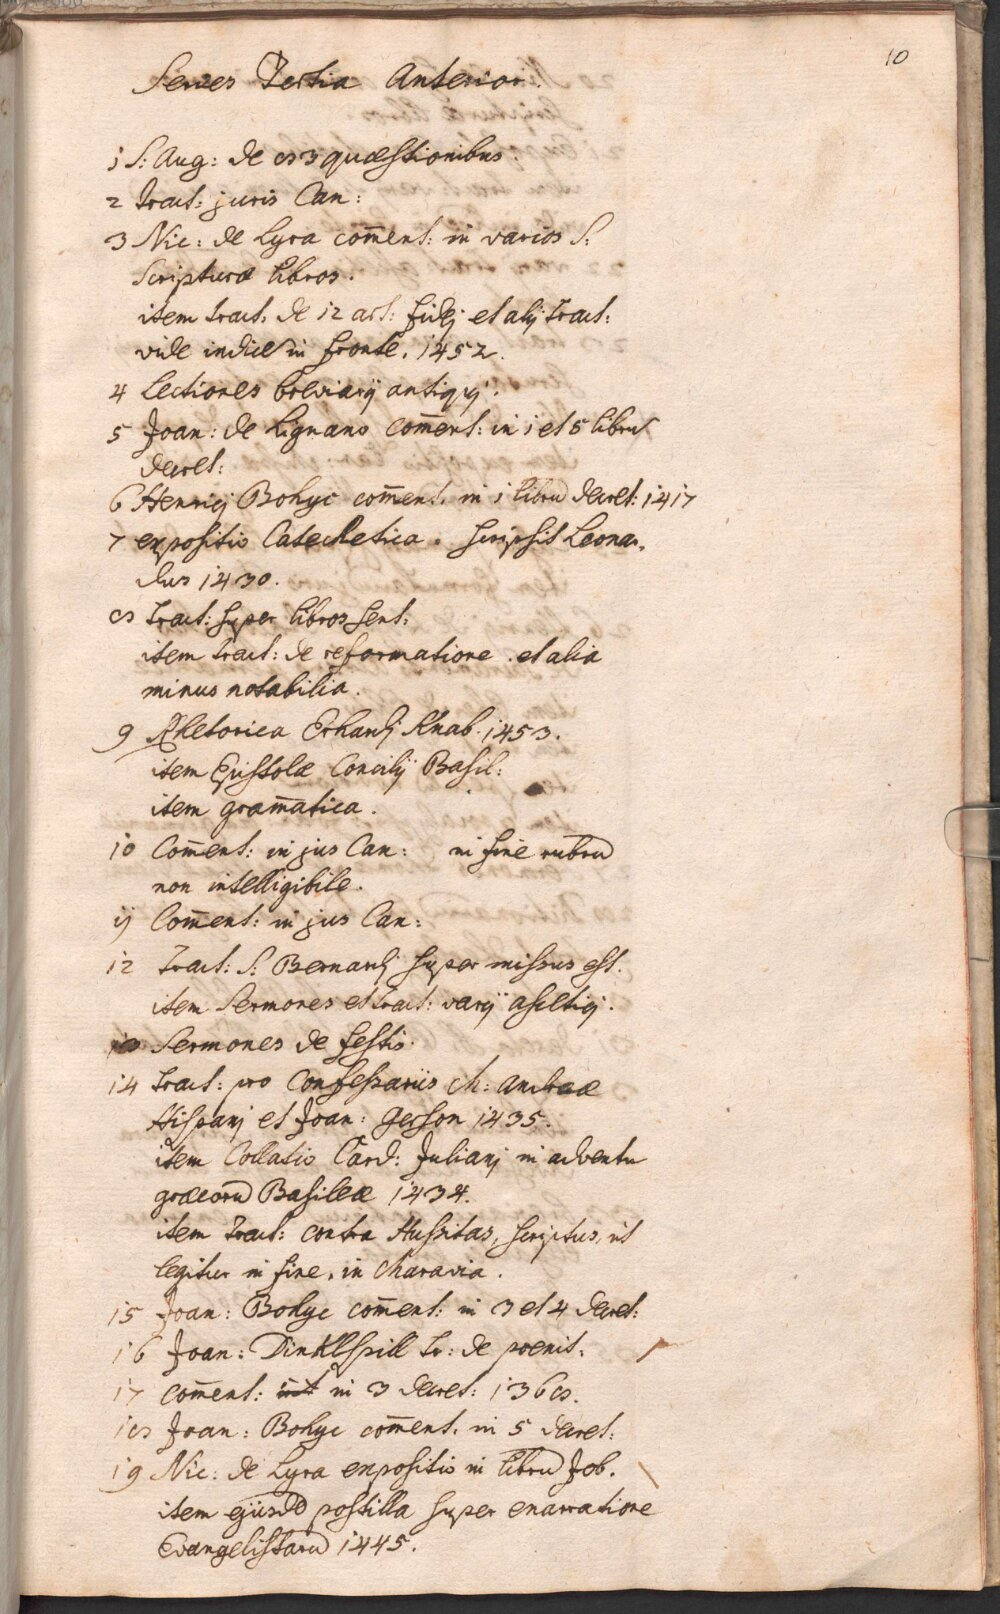 10
Series Tertia Anterior.
1 S: Aug: de 83 quæstionibus.
2 tract: juris Can:
3 Nic: de Lyra com̄ent: in varios S:
Scripturæ libros.
item tract: de 12 art: fidej et alij tract:
vide indicē in fronte. 1452.
4 Lectiones breviarij antiqui.
5 Joan: de Lignano com̄ent: in 1 et 5 librū
decret:
6 Henricj Bohyc com̄ent. in 1 librū decret: 1417
7 expositio Catechetica. scripsit Leonar,
dus 1430.
8 tract: super libros sent:
item tract: de reformatione. et alia
minus notabilia.
9 Rhetorica Erhardj Knab. 1453.
item Epistolæ Concilij Basil:
item gram̄atica.
10 Com̄ent: in jus Can: in fine rubrū
non intelligibile.
11 Com̄ent: in jus Can:
12 tract: S: Bernardj super missus est.
item Sermones et tract: varij ascetici.
13 Sermones de festis.
14 tract: pro Confessariis M: Andreæ
Hispanj et Joan: Gerson 1435.
item Collatio Card: Julianj in adventu
græcorū Basileæ 1434.
item tract: contra Hussitas, scriptus, ut
legitur in fine, in Maravia.
15 Joan: Bohyc com̄ent: in 3 et 4 decret:
16 Joan: Dinklspill tr: de poenit.
17 com̄ent: in 3 decret: 1368.
18 Joan: Bohyc com̄ent. in 5 decret:
19 Nic: de Lyra expositio in librū Job.
item ejusdē postilla super enarratione
Evangelistarū 1445.